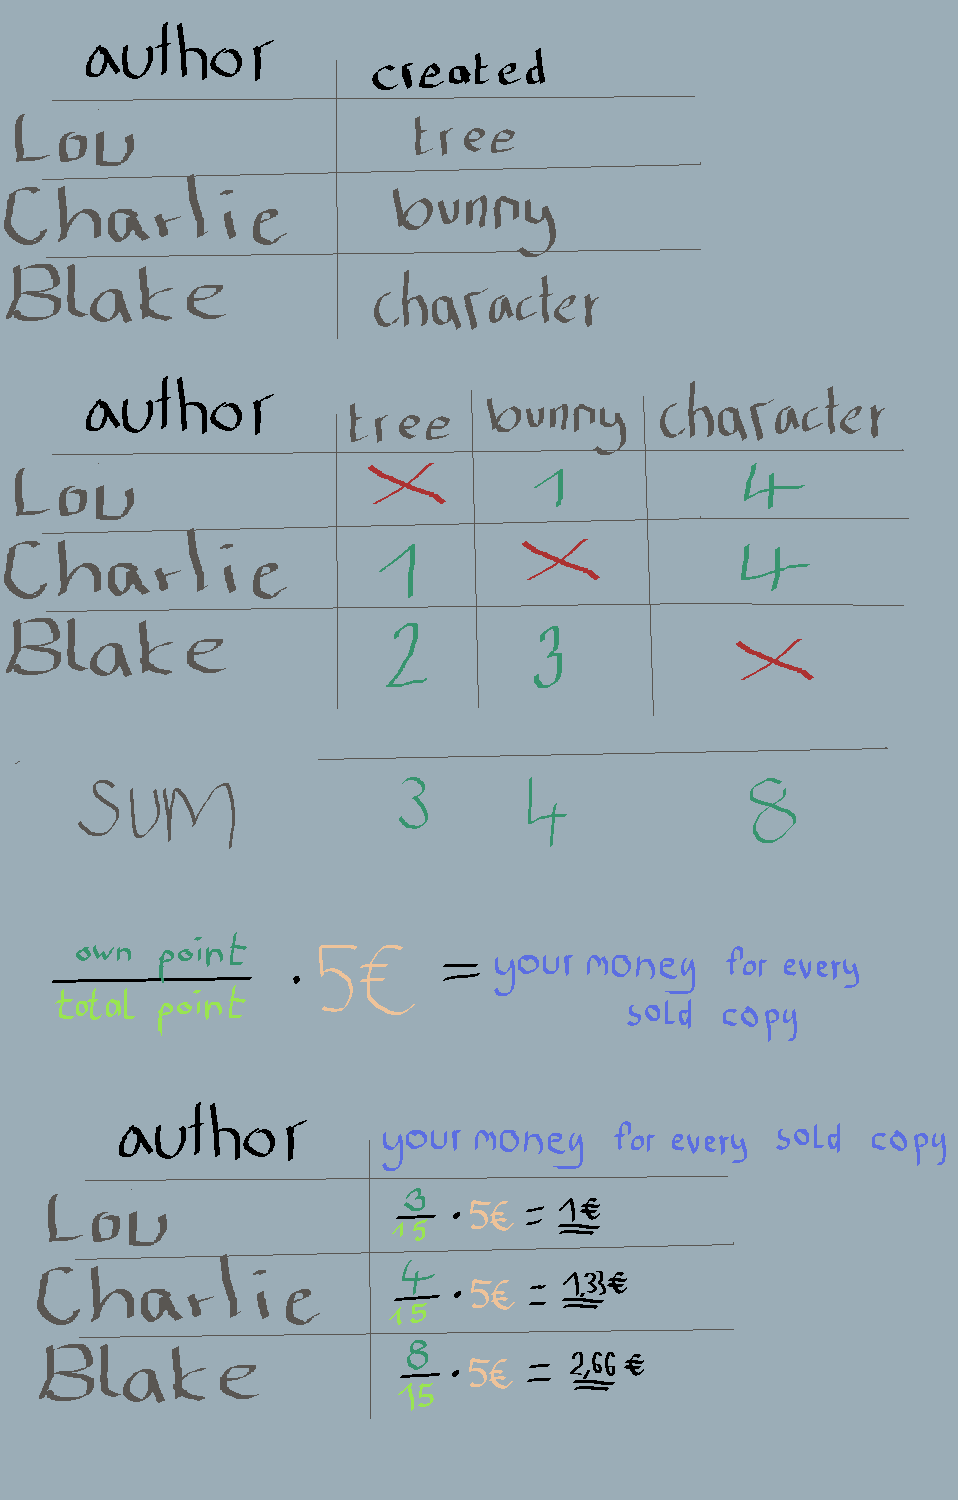 author created
Lou tree
Charlie bunny
Blake character
author tree bunny character
Lou X 1 4
Charlie 1 X 4
Blake 2 3 X
SUM 3 4 8
own point
total point
· 5€ = your money for every
sold copy
author your money for every sold copy
Lou 3/15 · 5€ = 1€
Charlie 4/15 · 5€ = 1,33€
Blake 8/15 · 5€ = 2,66€